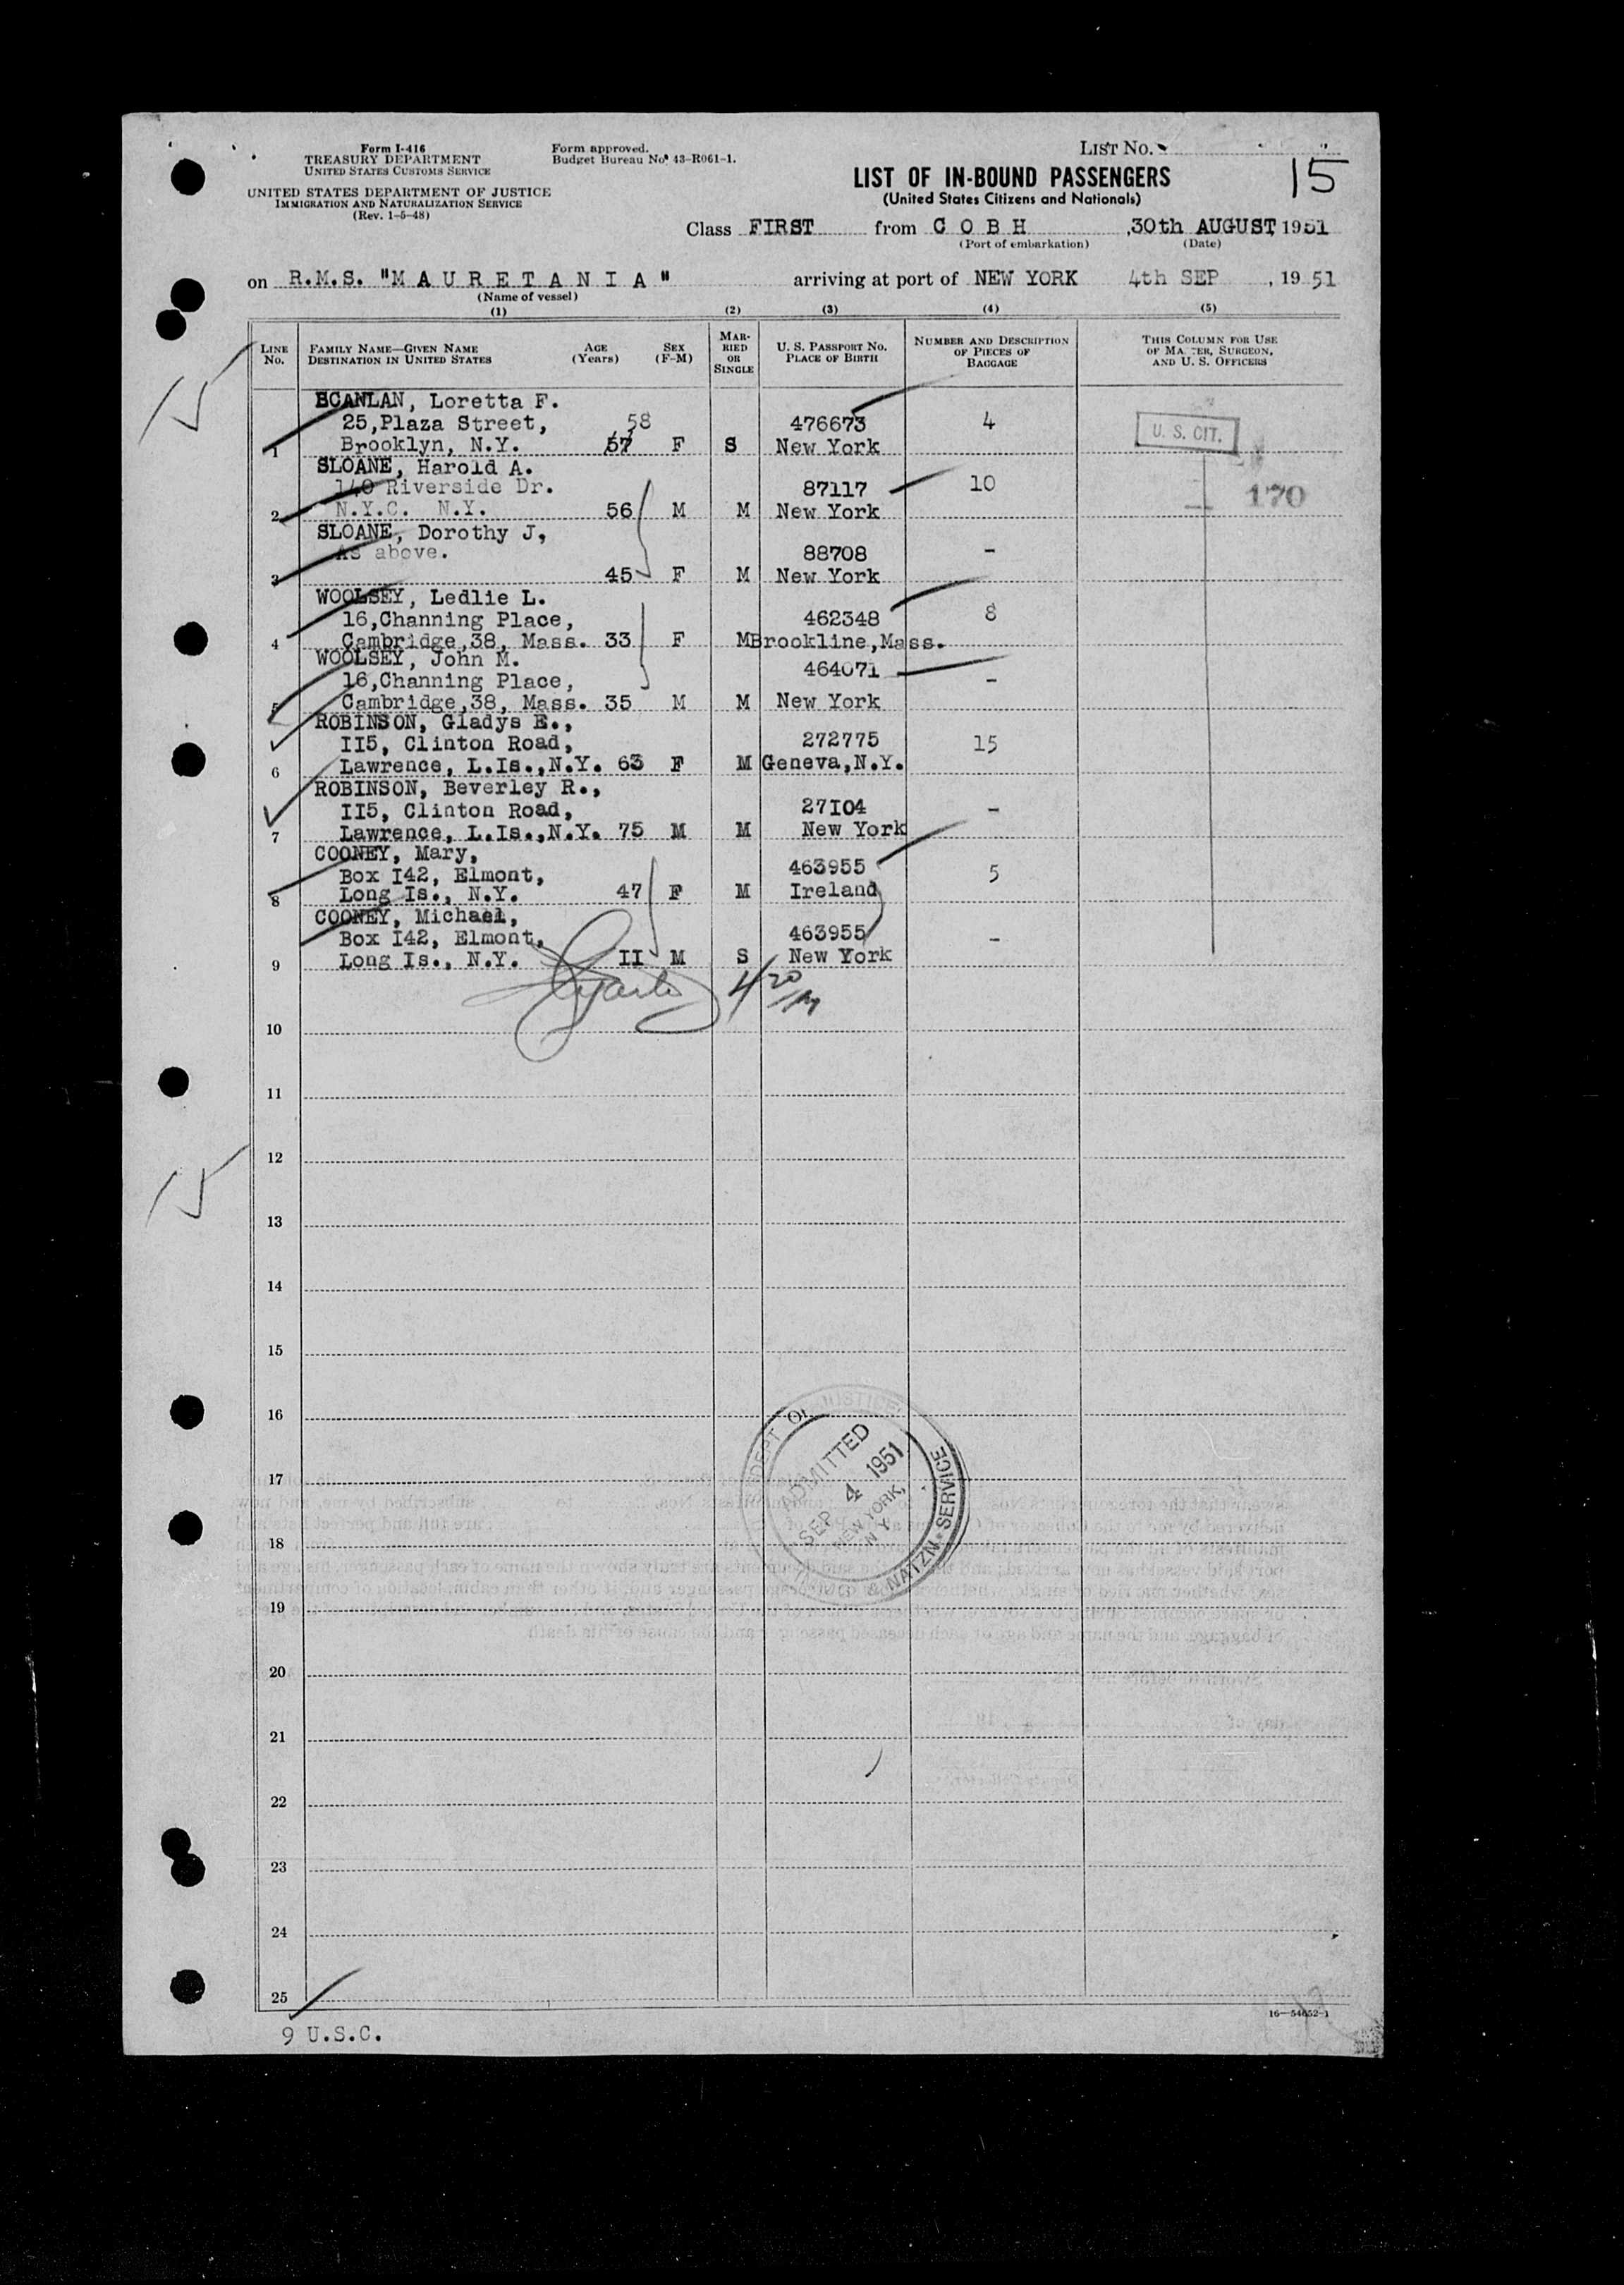 Form I-416
TREASURY DEPARTMENT
UNITED STATES CUSTOMS SERVICE
UNITED STATES DEPARTMENT OF JUSTICE
IMMIGRATION AND NATURALIZATION SERVICE
(Rev. 1-5-48)
Form approved.
Budget Bureau No. 43-R061-1.
LIST No.
15
LIST OF IN-BOUND PASSENGERS
(United States Citizens and Nationals)
Class FIRST from C O B H ,30th AUGUST, 1951
(Port of embarkation) (Date)
on R.M.S. "M A U R E T A N I A" arriving at port of NEW YORK 4th SEP , 19 51
(Name of vessel)
(1) (2) (3) (4) (5)
LINE No. FAMILY NAME—GIVEN NAME DESTINATION IN UNITED STATES AGE (Years) SEX (F-M) MARRIED OR SINGLE U. S. PASSPORT NO. PLACE OF BIRTH NUMBER AND DESCRIPTION OF PIECES OF BAGGAGE THIS COLUMN FOR USE OF MASTER, SURGEON, AND U. S. OFFICERS
SCANLAN, Loretta F.
25,Plaza Street, 58 476673 4 U. S. CIT.
1 Brooklyn, N.Y. 57 F S New York
SLOANE, Harold A.
140 Riverside Dr. 87117 10 170
2 N.Y.C. N.Y. 56 M M New York
SLOANE, Dorothy J,
As above. 88708 -
3 45 F M New York
WOOLSEY, Ledlie L.
16,Channing Place, 462348 8
4 Cambridge,38, Mass. 33 F M Brookline,Mass.
WOOLSEY, John M. 464071
16,Channing Place, -
5 Cambridge,38, Mass. 35 M M New York
ROBINSON, Gladys E.,
II5, Clinton Road, 272775 15
6 Lawrence, L.Is.,N.Y. 63 F M Geneva,N.Y.
ROBINSON, Beverley R.,
II5, Clinton Road, 27I04 -
7 Lawrence, L.Is.,N.Y. 75 M M New York
COONEY, Mary,
Box I42, Elmont, 463955 5
8 Long Is., N.Y. 47 F M Ireland
COONEY, Michael,
Box I42, Elmont, 463955 -
9 Long Is., N.Y. II M S New York
10
11
12
13
14
15
16
17
18
19
20
21
22
23
24
25
DEPT OF JUSTICE
ADMITTED
SEP 4 1951
NEW YORK,
N Y
& NATZN SERVICE
16—54652-1
9 U.S.C.